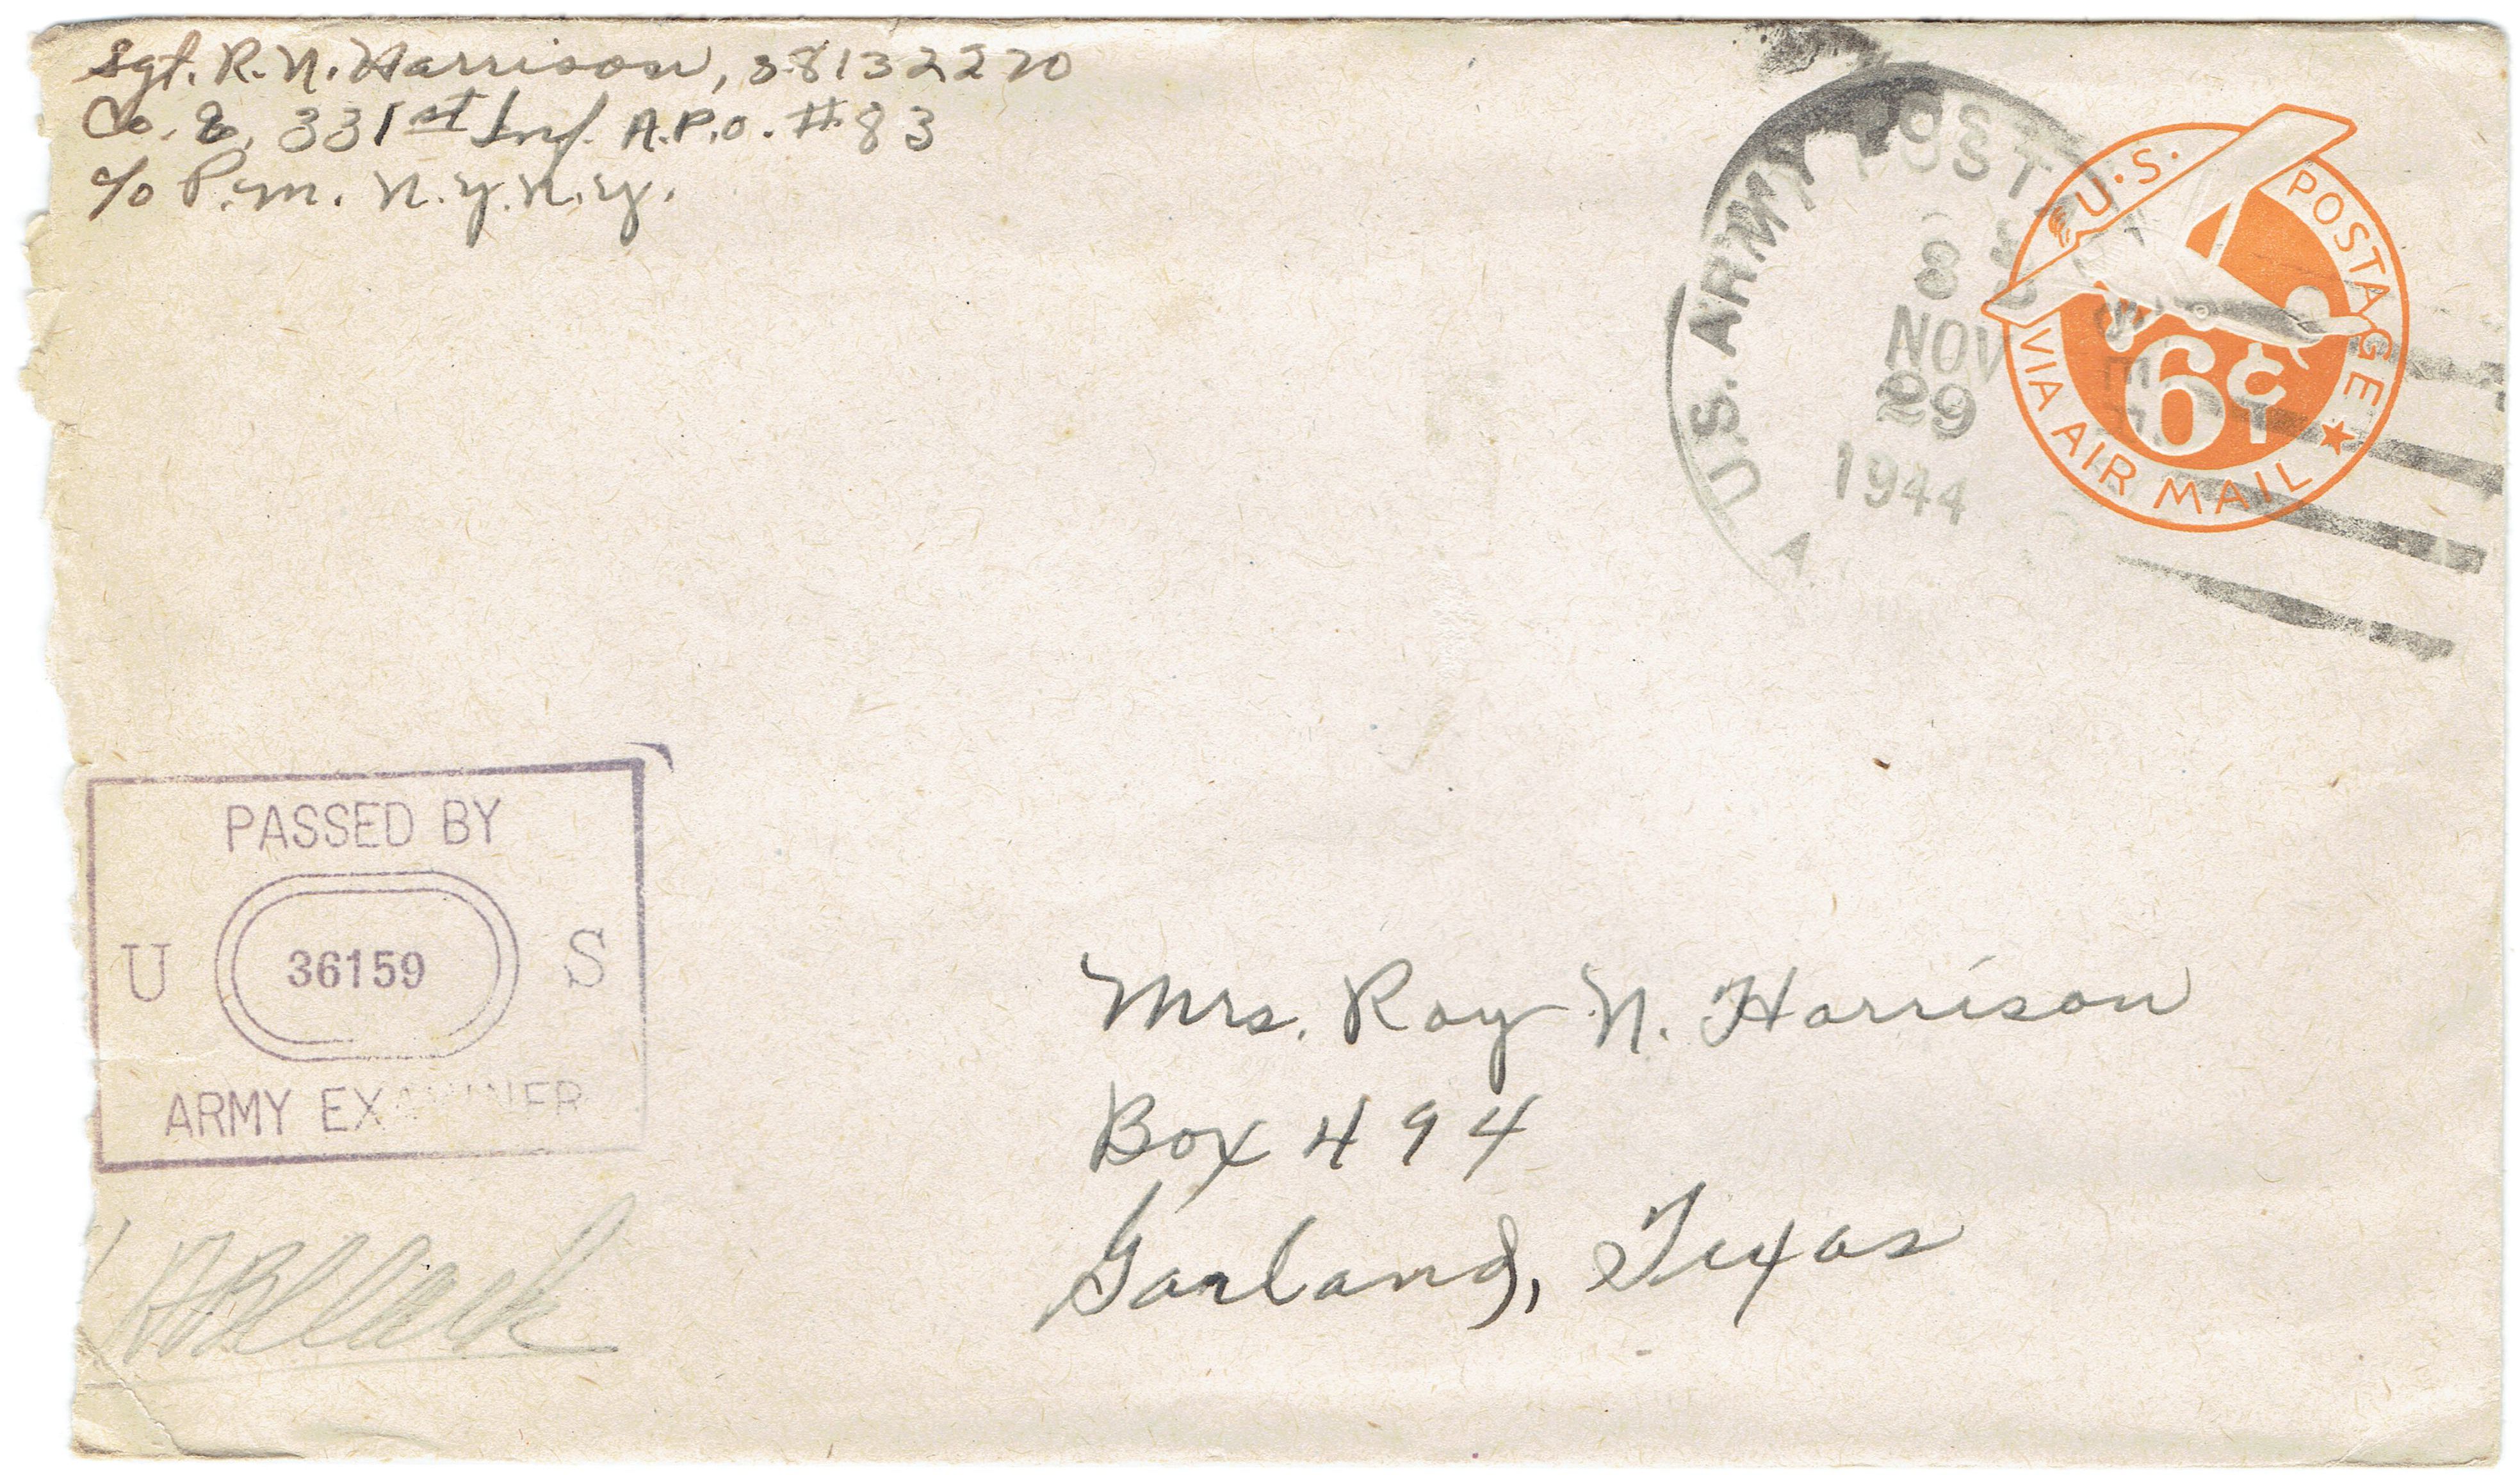 Sgt. R. N. Harrison, 38132270
Co. E, 331st Inf. A.P.O. #83
c/o P.M. N.Y. N.Y.
U.S. ARMY POST
8
NOV
29
1944
A.
U.S. POSTAGE
6¢
VIA AIR MAIL
PASSED BY
U 36159 S
ARMY EXAMINER
Mrs. Roy N. Harrison
Box 494
Garland, Texas